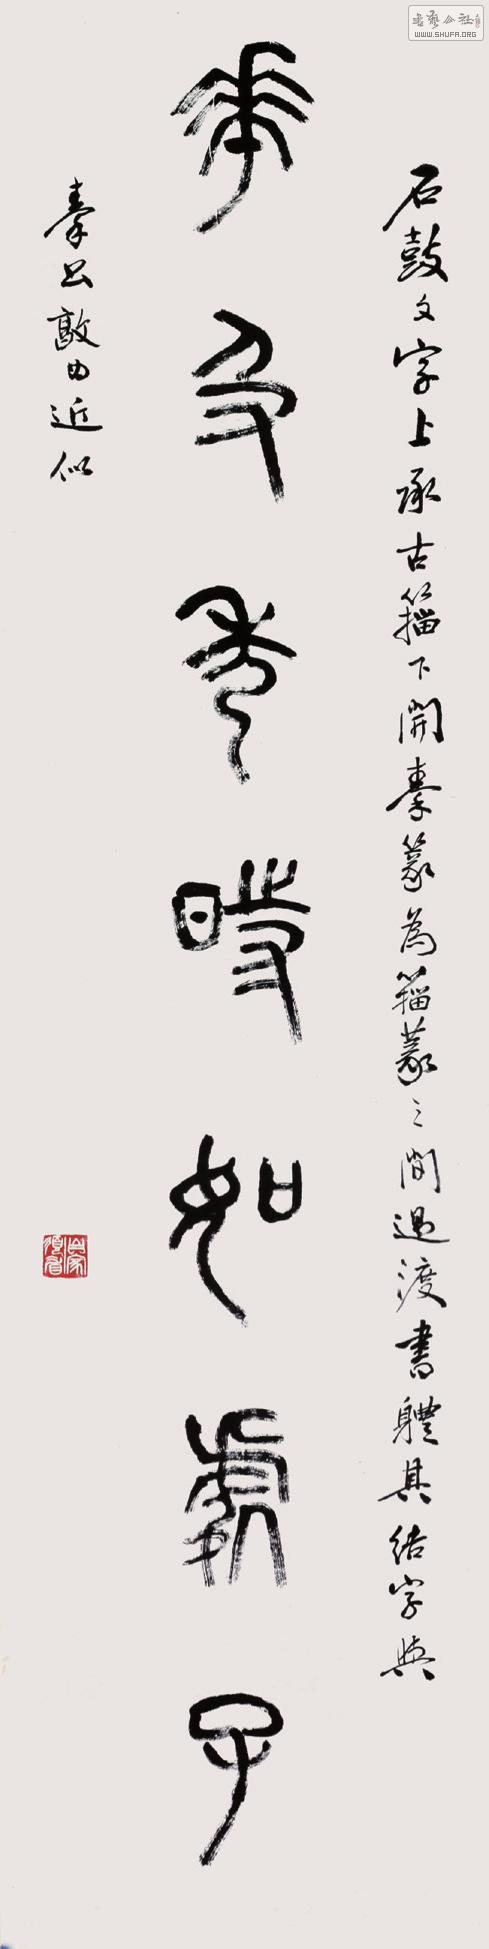 書藝公社
WWW.SHUFA.ORG
石鼓文字上承古籀下開秦篆為籀篆之間過渡書體其結字與
華及秀時如處子
秦公敦由近似